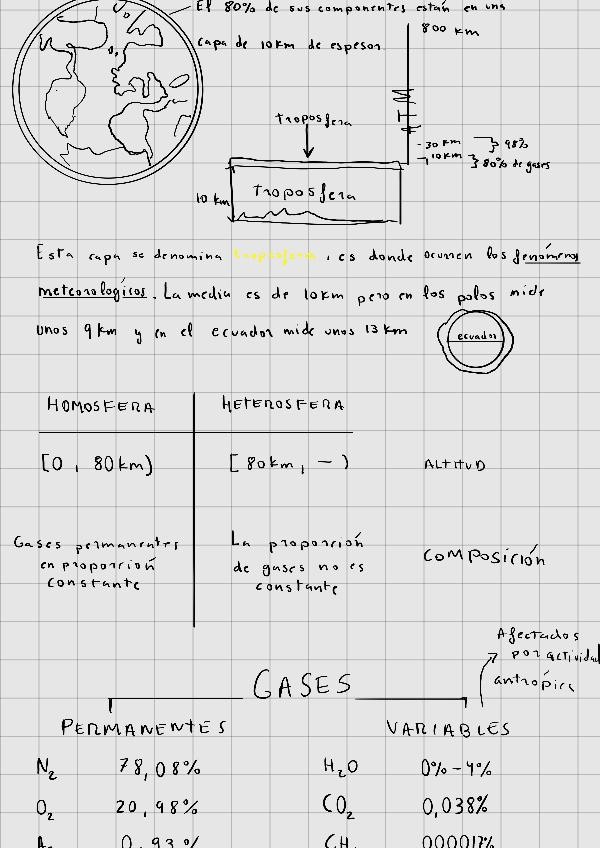 El 80% de sus componentes están en una
capa de 10km de espesor
800 km
troposfera
-30 km 98%
10km 80% de gases
10 km
troposfera
Esta capa se denomina troposfera, es donde ocurren los fenómenos
meteorológicos. La media es de 10km pero en los polos mide
unos 9km y en el ecuador mide unos 13km
ecuador
HOMOSFERA HETEROSFERA
[0, 80km) [80km, -) ALTITUD
Gases permanentes
en proporción
constante
La proporción
de gases no es
constante
COMPOSICIÓN
Afectados
por actividad
antrópica
GASES
PERMANENTES VARIABLES
N2 78,08% H2O 0%-4%
O2 20,98% CO2 0,038%
0,93%